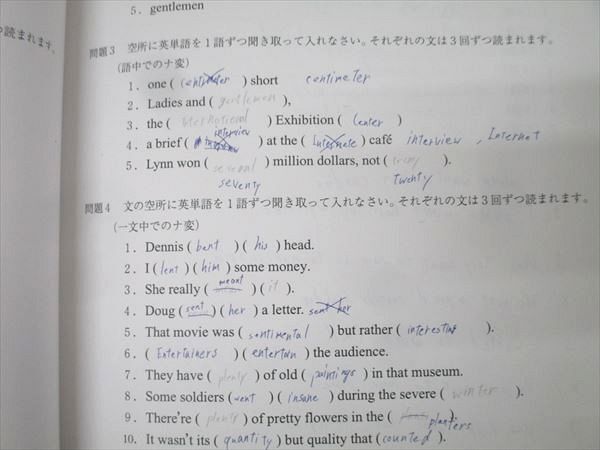 5. gentlemen
つ読まれます。
問題3 空所に英単語を1語ずつ聞き取って入れなさい。それぞれの文は3回ずつ読まれます。
(語中でのナ変)
1. one ( centimeter ) short centimeter
2. Ladies and ( gentlemen ),
3. the ( ) Exhibition ( Center )
4. a brief ( interview ) at the ( ) café interview, Internet
5. Lynn won ( ) million dollars, not ( ).
seventy twenty
問題4 文の空所に英単語を1語ずつ聞き取って入れなさい。それぞれの文は3回ずつ読まれます。
(一文中でのナ変)
1. Dennis ( bent ) ( his ) head.
2. I ( lent ) ( him ) some money.
3. She really ( meant ) ( it ).
4. Doug ( sent ) ( her ) a letter. sent her
5. That movie was ( sentimental ) but rather ( interesting ).
6. ( Entertainers ) ( entertain ) the audience.
7. They have ( plenty ) of old ( paintings ) in that museum.
8. Some soldiers ( went ) ( insane ) during the severe ( winter ).
9. There're ( plenty ) of pretty flowers in the ( planters ).
10. It wasn't its ( quantity ) but quality that ( counted ).